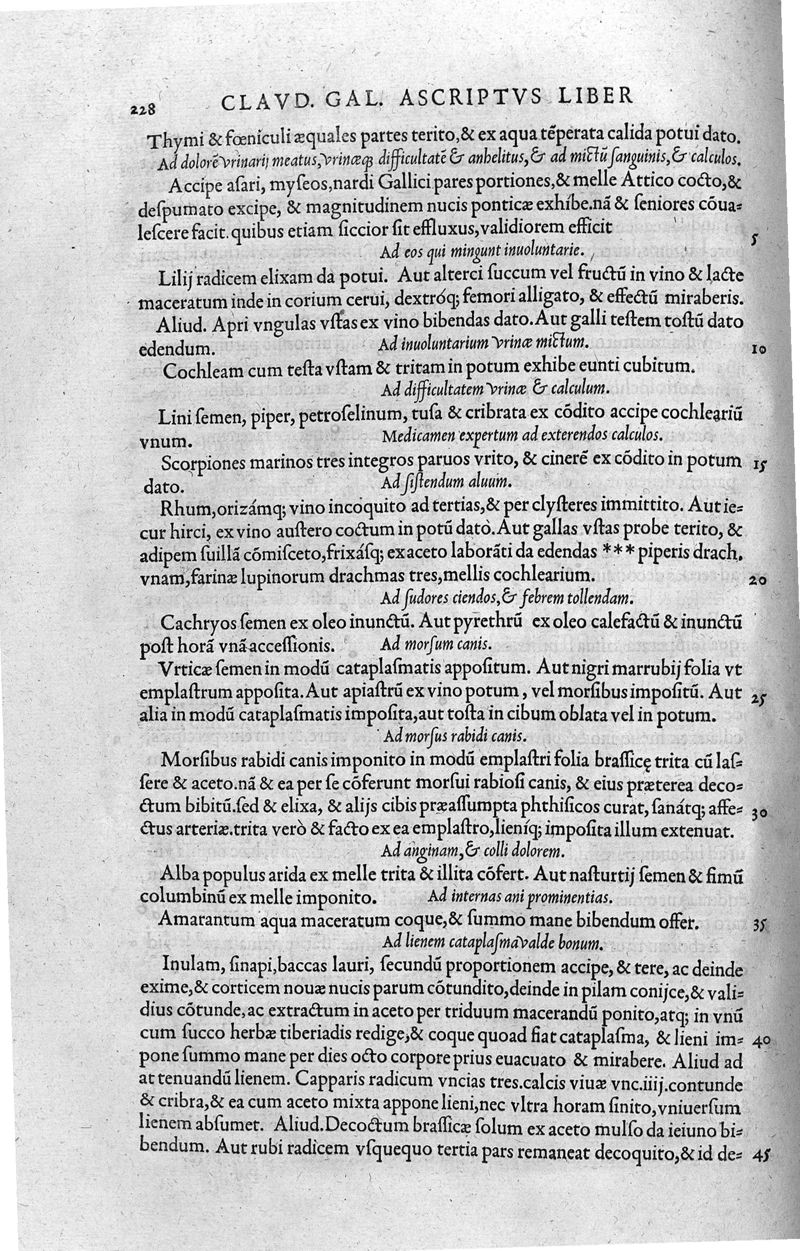 228 CLAVD. GAL. ASCRIPTVS LIBER
Thymi & fœniculi æquales partes terito,& ex aqua tẽperata calida potui dato.
Ad dolorẽ vrinarij meatus,vrinæq; difficultatẽ & anhelitus,& ad mictũ ſanguinis,& calculos.
Accipe aſari, myſeos,nardi Gallici pares portiones,& melle Attico cocto,&
deſpumato excipe, & magnitudinem nucis ponticæ exhibe.nã & ſeniores cõua=
leſcere facit.quibus etiam ſiccior ſit effluxus,validiorem efficit 5
Ad eos qui mingunt inuoluntarie.
Lilij radicem elixam da potui. Aut alterci ſuccum vel fructũ in vino & lacte
maceratum inde in corium cerui, dextróq; femori alligato, & effectũ miraberis.
Aliud. Apri vngulas vſtas ex vino bibendas dato.Aut galli teſtem toſtũ dato
edendum. Ad inuoluntarium vrinæ mictum. 10
Cochleam cum teſta vſtam & tritam in potum exhibe eunti cubitum.
Ad difficultatem vrinæ & calculum.
Lini ſemen, piper, petroſelinum, tuſa & cribrata ex cõdito accipe cochleariũ
vnum. Medicamen expertum ad exterendos calculos.
Scorpiones marinos tres integros paruos vrito, & cinerẽ ex cõdito in potum 15
dato. Ad ſiſtendum aluum.
Rhum,orizámq; vino incoquito ad tertias,& per clyſteres immittito. Aut ie=
cur hirci, ex vino auſtero coctum in potũ dato.Aut gallas vſtas probe terito, &
adipem ſuillã cõmiſceto,frixáſq; ex aceto laborãti da edendas *** piperis drach.
vnam,farinæ lupinorum drachmas tres,mellis cochlearium. 20
Ad ſudores ciendos,& febrem tollendam.
Cachryos ſemen ex oleo inunctũ. Aut pyrethrũ ex oleo calefactũ & inunctũ
poſt horã vnã acceſſionis. Ad morſum canis.
Vrticæ ſemen in modũ cataplaſmatis appoſitum. Aut nigri marrubij folia vt
emplaſtrum appoſita.Aut apiaſtrũ ex vino potum, vel morſibus impoſitũ. Aut 25
alia in modũ cataplaſmatis impoſita,aut toſta in cibum oblata vel in potum.
Ad morſus rabidi canis.
Morſibus rabidi canis imponito in modũ emplaſtri folia braſſicę trita cũ laſ=
ſere & aceto.nã & ea per ſe cõferunt morſui rabioſi canis, & eius præterea deco=
ctum bibitũ.ſed & elixa, & alijs cibis præaſſumpta phthiſicos curat, ſanátq; affe= 30
ctus arteriæ.trita verò & facto ex ea emplaſtro,lieníq; impoſita illum extenuat.
Ad anginam,& colli dolorem.
Alba populus arida ex melle trita & illita cõfert. Aut naſturtij ſemen & fimũ
columbinũ ex melle imponito. Ad internas ani prominentias.
Amarantum aqua maceratum coque,& ſummo mane bibendum offer. 35
Ad lienem cataplaſma valde bonum.
Inulam, ſinapi,baccas lauri, ſecundũ proportionem accipe, & tere, ac deinde
exime,& corticem nouæ nucis parum cõtundito,deinde in pilam conijce,& vali=
dius cõtunde,ac extractum in aceto per triduum macerandũ ponito,atq; in vnũ
cum ſucco herbæ tiberiadis redige,& coque quoad fiat cataplaſma, & lieni im= 40
pone ſummo mane per dies octo corpore prius euacuato & mirabere. Aliud ad
attenuandũ lienem. Capparis radicum vncias tres.calcis viuæ vnc.iiij.contunde
& cribra,& ea cum aceto mixta appone lieni,nec vltra horam ſinito,vniuerſum
lienem abſumet. Aliud.Decoctum braſſicæ ſolum ex aceto mulſo da ieiuno bi=
bendum. Aut rubi radicem vſquequo tertia pars remaneat decoquito,& id de= 45